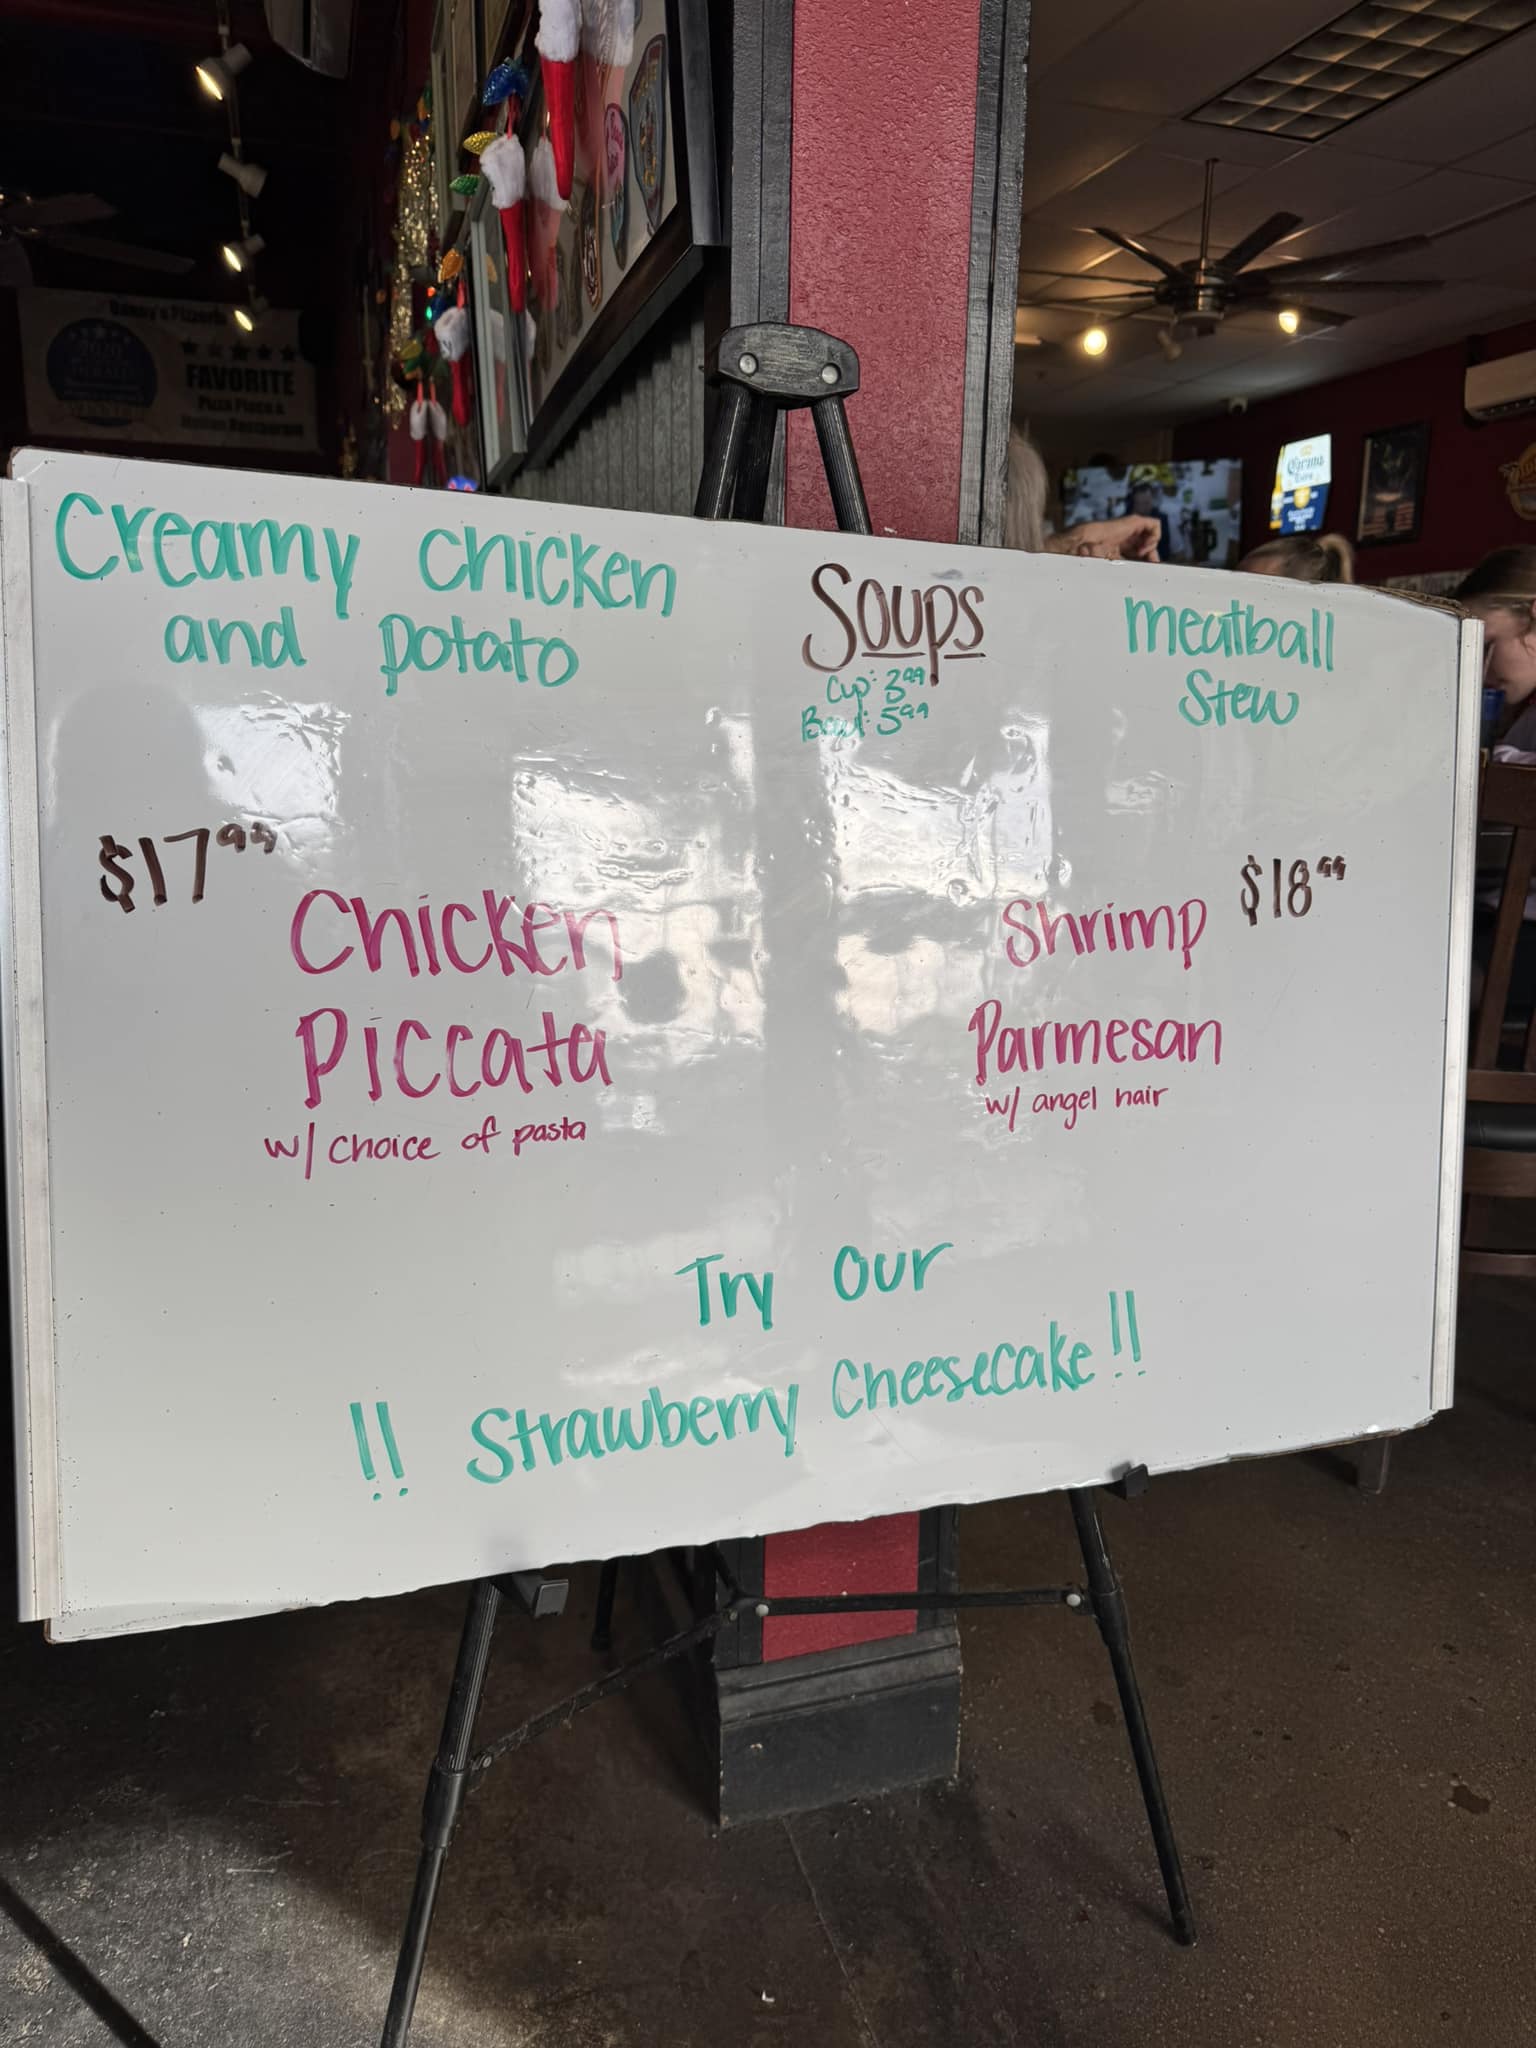 Danny's Pizzeria
FAVORITE
Pizza Place &
Italian Restaurant
Corona
Extra
Creamy chicken
and potato
Soups
Cup: 3.99
Bowl: 5.99
meatball
Stew
$17.99
Chicken
Piccata
w/ choice of pasta
Shrimp
$18.99
Parmesan
w/ angel hair
Try our
!! Strawberry Cheesecake !!